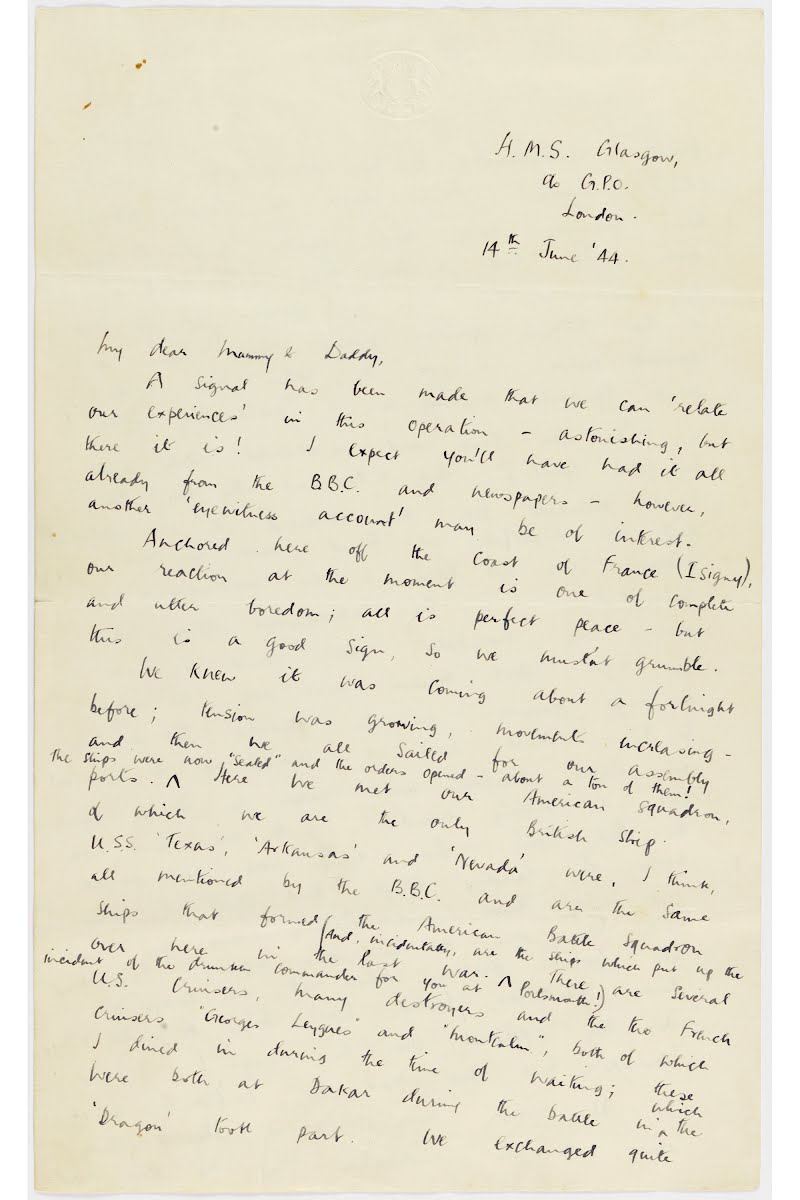 H.M.S. Glasgow,
c/o G.P.O.
London.
14th June '44.
My dear Mummy & Daddy,
A signal has been made that we can 'relate
our experiences' in this operation – astonishing, but
there it is! I expect you'll have had it all
already from the B.B.C. and newspapers – however,
another 'eyewitness account' may be of interest.
Anchored here off the coast of France (Isigny),
our reaction at the moment is one of complete
and utter boredom; all is perfect peace – but
this is a good sign, so we mustn't grumble.
We knew it was coming about a fortnight
before; tension was growing, movements increasing –
and then we all sailed for our assembly
the ships were now "sealed" and the orders opened – about a ton of them!
ports. ^ Here we met our American squadron,
of which we are the only British ship.
U.S.S. 'Texas', 'Arkansas' and 'Nevada' were, I think,
all mentioned by the B.B.C. and are the same
ships that formed the American Battle Squadron
(And, incidentally, are the ships which put up the
over here in the last war. ^ There are several
incident of the drunken commander for you at Portsmouth!)
U.S. Cruisers, many destroyers and the two French
Cruisers "Georges Leygues" and "Montcalm", both of which
I dined in during the time of waiting; these
were both at Dakar during the battle in ^ which the
'Dragon' took part. We exchanged quite